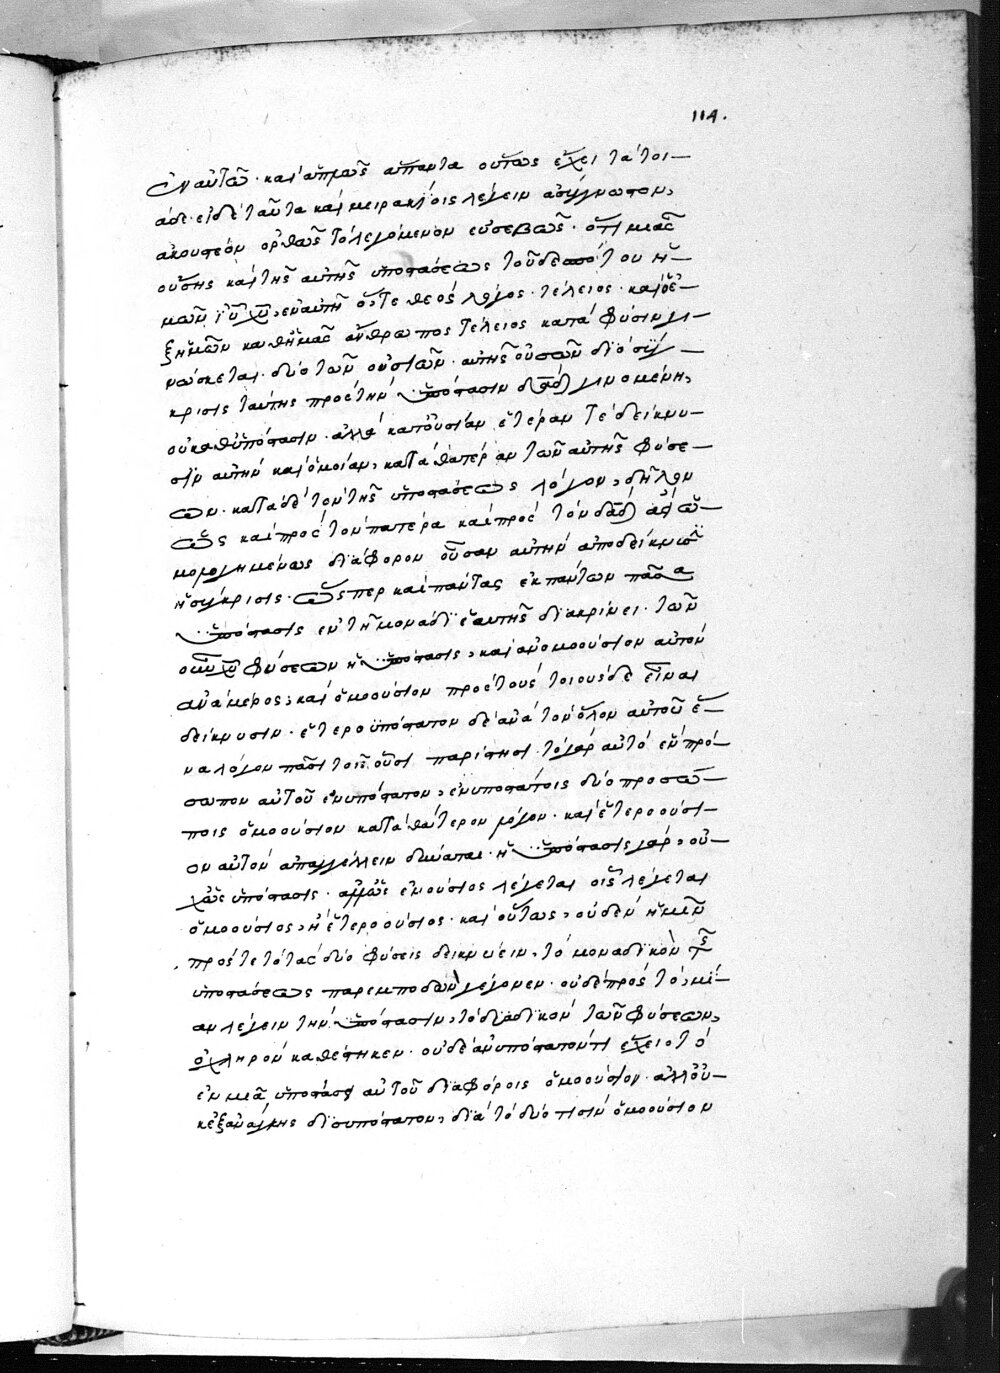 114.
ἐν αὐτῶ· καὶ ἁπλῶς ἅπαντα οὕτως ἔχει τὰ τοι-
άδε· εἰ δὲ ταῦτα καὶ μειρακίοις λέγειν ἀσύγγνωστον,
ἀκουστέον ὀρθῶς τὸ λεγόμενον εὐσεβῶς· ὅτι μιᾶς
οὔσης καὶ τῆς αὐτῆς ὑποστάσεως τοῦ δεσπότου ἡ-
μῶν ἰῦ χῦ, ἐν αὐτῆ ὅ, τε θεὸς λόγος τέλειος· καὶ ὁ ἐ-
ξ ἡμῶν καθ' ἡμᾶς ἄνθρωπος τέλειος κατὰ φύσιν γι-
νώσκεται· δύο τῶν οὐσιῶν αὐτῆς οὐσῶν διὸ σύγ-
κρισις ταύτης πρὸς τὴν ὑπόστασιν δαδ γινομένη,
οὐ καθ' ὑπόστασιν· ἀλλὰ κατ' οὐσίαν ἑτέραν τὲ δείκνυ-
σιν αὐτὴν καὶ ὁμοίαν, κατὰ θατέραν τῶν αὐτῆς φύσε-
ων· κατὰ δὲ τὸν τῆς ὑποστάσεως λόγον, δῆλον
ὡς καὶ πρὸς τὸν πατέρα καὶ πρὸς τὸν δαδ
μολογημένως διάφορον οὖσαν αὐτὴν ἀποδείκνυσι
ἡ σύγκρισις· ὥσπερ καὶ πάντας ἐκ πάντων πᾶσα
ὑπόστασις ἐν τῆ μονάδι ἑαυτῆς διακρίνει· τῶν
οὖν χῦ φύσεων ἡ ὑπόστασις, καὶ ἀνομοούσιον αὐτὸν
ἀνὰ μέρος, καὶ ὁμοούσιον πρὸς τοὺς τοιούσδε εἶναι
δείκνυσιν· ἑτεροϋπόστατον δὲ ἀνὰ τὸν ὅλον αὐτοῦ ἕ-
να λόγον πᾶσι τοῖς οὖσι παρίστησι· τὸ γὰρ αὐτὸ ἓν πρό-
σωπον αὐτοῦ ἐνυπόστατον, ἐνυποστάτοις δύο προσώ-
ποις ὁμοούσιον κατὰ θάτερον λόγον· καὶ ἑτεροούσι-
ον αὐτὸν ἀπαγγέλλειν δύναται· ἡ ὑπόστασις γὰρ, οὐ-
χ ὡς ὑπόστασις· ἀλλ' ὡς ἐνούσιος λέγεται οἷς λέγεται
ὁμοούσιος, ἢ ἑτεροούσιος· καὶ οὕτως, οὐδὲν ἡμῖν
πρὸς τὸ τὰς δύο φύσεις δεικνύειν, τὸ μοναδικὸν τῆς
ὑποστάσεως παρεμποδὼν γέγονεν· οὐδὲ πρὸς τὸ, μί-
αν λέγειν τὴν ὑπόστασιν, τὸ δυαδικὸν τῶν φύσεων,
ὀχληρὸν καθέστηκεν· οὐδὲ ἀνυπόστατόν τι ἔχει ὅτ' ὁ
ἐν μιᾶ ὑποστάσει αὐτοῦ διαφόροις ὁμοούσιον· ἀλλ' οὐ-
κ ἐξ ἀνάγκης δισυπόστατον, διὰ τὸ δυό τισὶν ὁμοούσιον